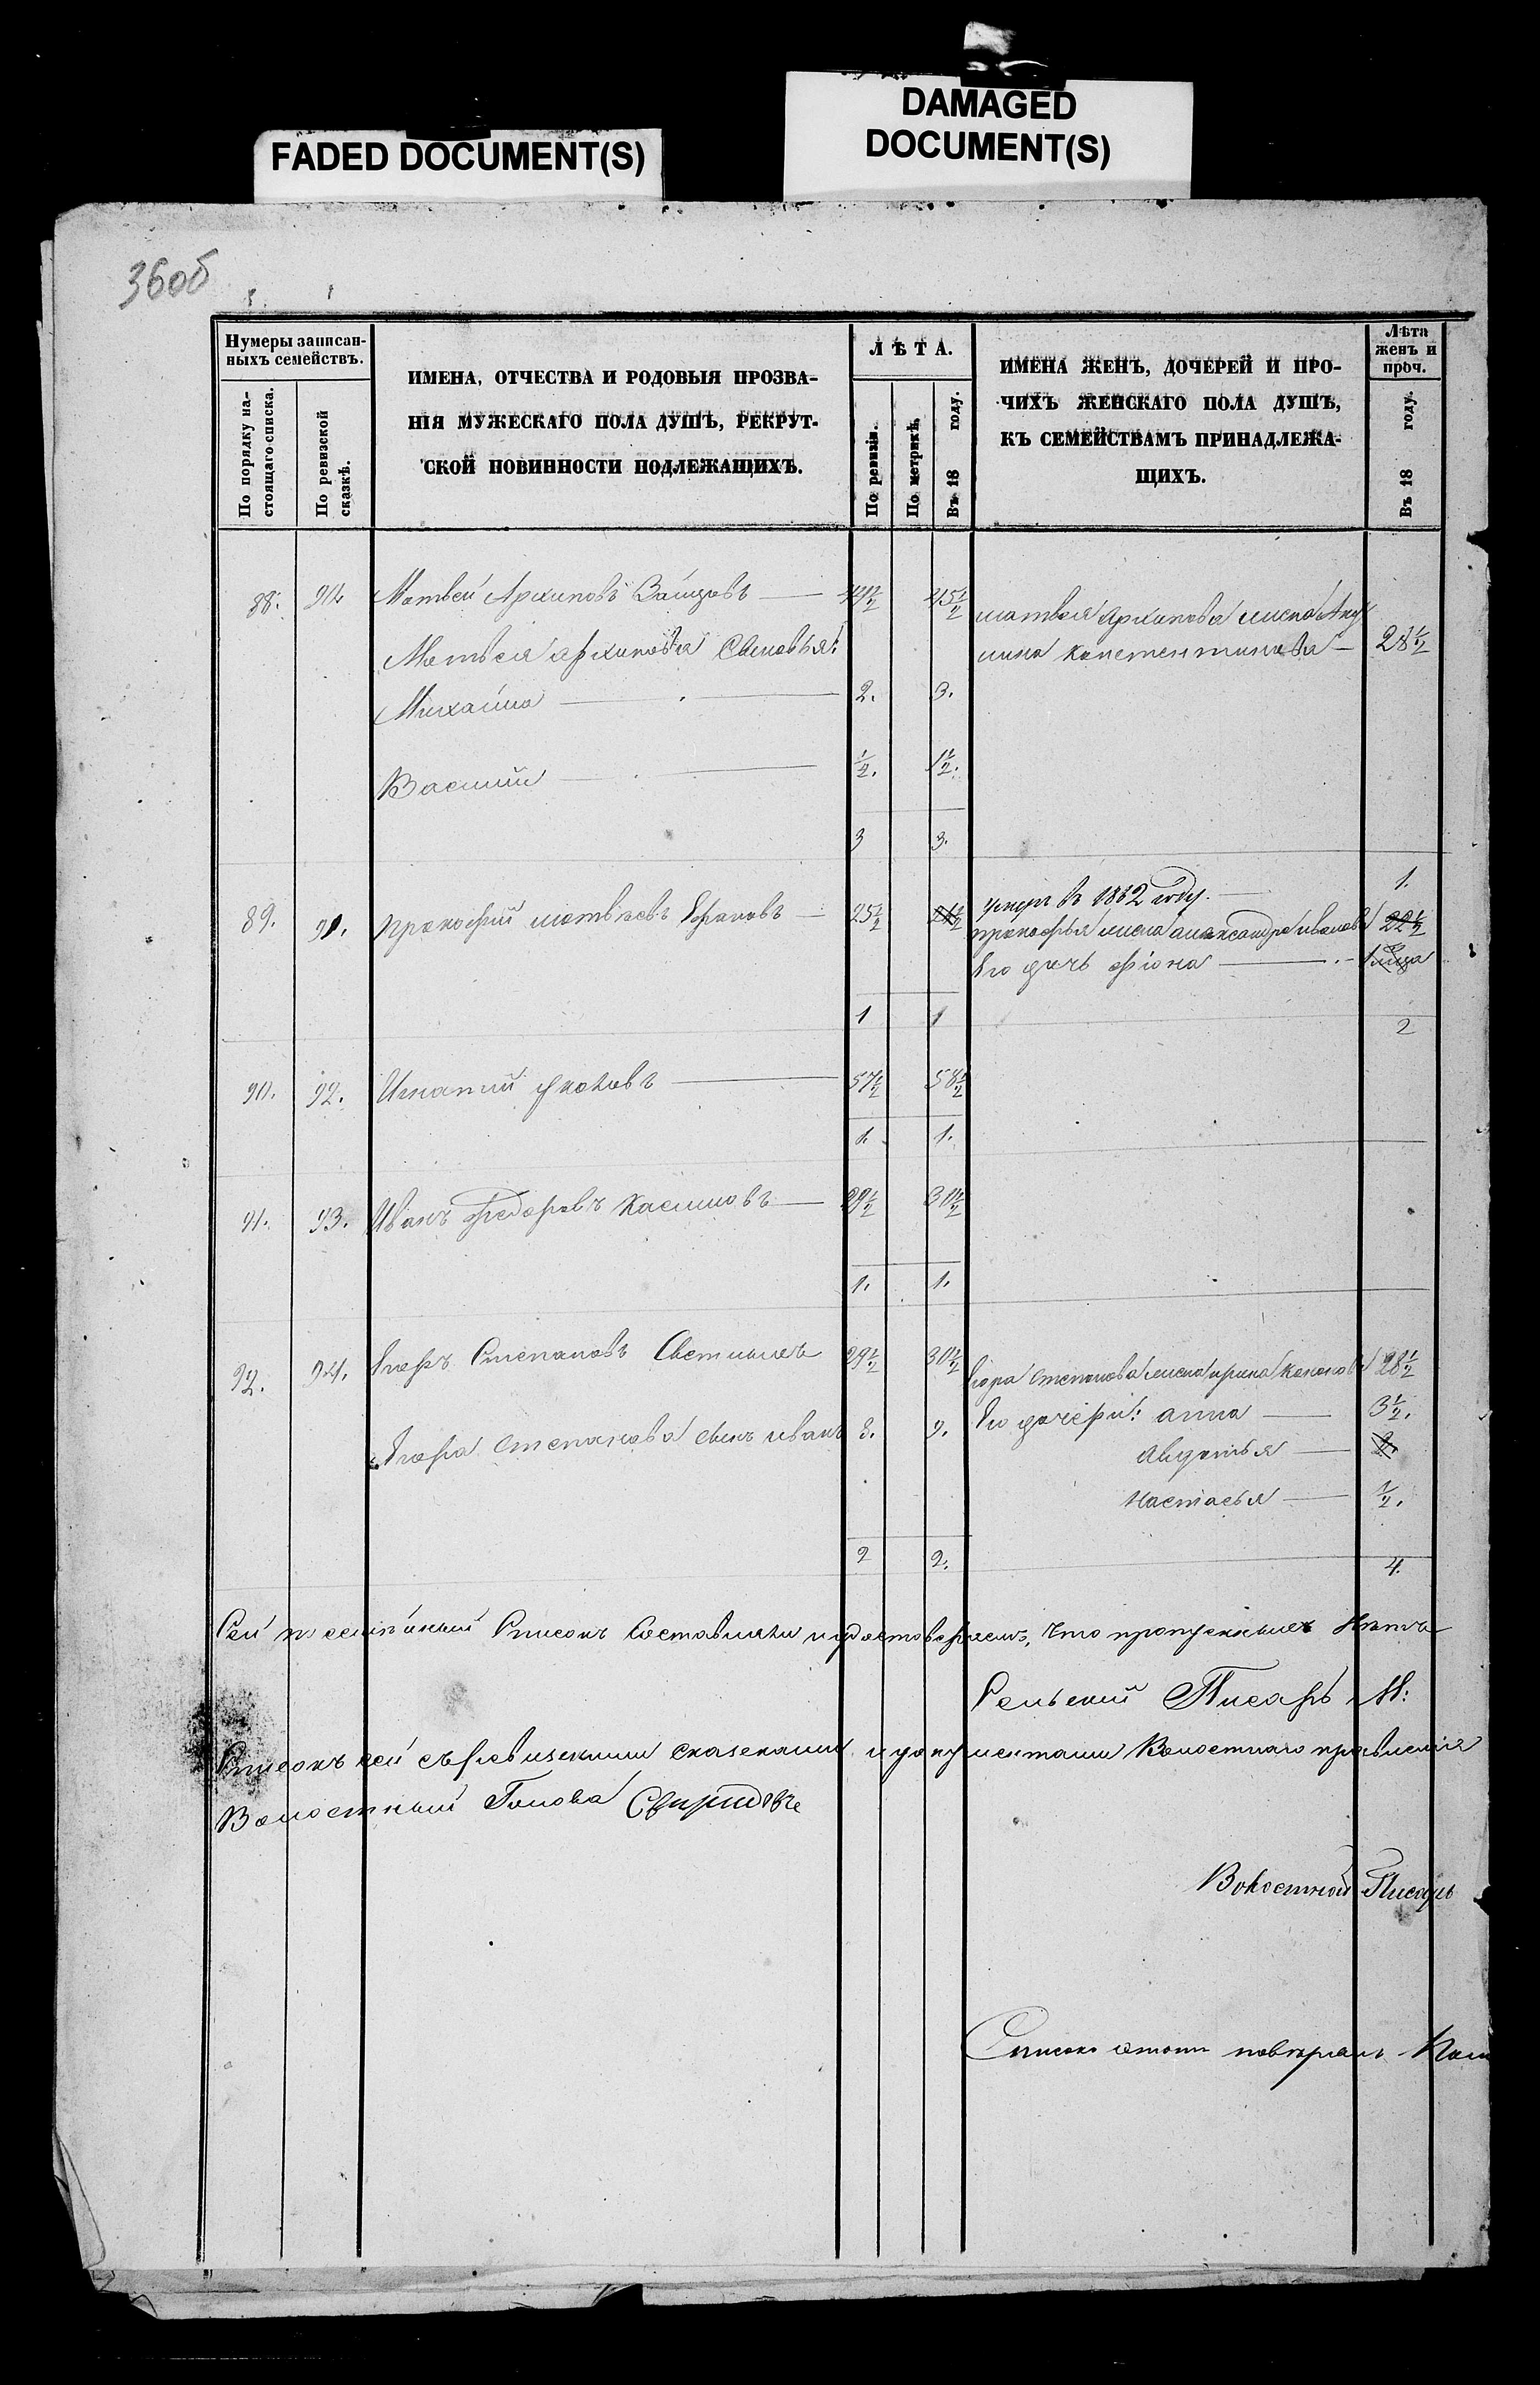 FADED DOCUMENT(S)
DAMAGED
DOCUMENT(S)
36об
Нумеры записан-
ныхъ семействъ.
По порядку на-
стоящаго списка.
По ревизской
сказкѣ.
ИМЕНА, ОТЧЕСТВА И РОДОВЫЯ ПРОЗВА-
НІЯ МУЖЕСКАГО ПОЛА ДУШЪ, РЕКРУТ-
СКОЙ ПОВИННОСТИ ПОДЛЕЖАЩИХЪ.
ЛѢТА.
По ревизіи.
По метрикѣ.
Въ 18 году.
ИМЕНА ЖЕНЪ, ДОЧЕРЕЙ И ПРО-
ЧИХЪ ЖЕНСКАГО ПОЛА ДУШЪ,
КЪ СЕМЕЙСТВАМЪ ПРИНАДЛЕЖА-
ЩИХЪ.
Лѣта
женъ и
проч.
Въ 18 году.
88. 90 Матвей Архиповъ Зайцовъ — 44½ 45½
матвея архипова жена Аку
лина констентинова — 28½
Матвея архипова Сыновья:
Михайла — 2. 3.
Василий — ½. 1½.
3 3.
1.
89. 91. прокофий матвѣевъ — 25½
умеръ въ 1862 году. —
прокофья жена александра иванова 22½
Его дочь фіона —
1 1
2
90. 92. Игнатий — 57½ 58½
1. 1.
91. 93. Иванъ Федоровъ Касимовъ — 29½ 30½
1. 1.
92. 94. Егоръ Степановъ 29½ 30½
Егора Степанова жена ирина 28½
Егора Степанова сынъ иванъ 8. 9.
Его дочери: анна — 3½.
авдотья — 2.
настасья — ½.
2 2.
4.
Сей посемейный Списокъ Составляли и удостоверяемъ, что пропускныхъ Нѣтъ
Сельский Писарь М:
Списокъ сей съ ревизскими сказками и документами Волостнаго правленія
Волостный Голова Свиридовъ
Волостной Писарь
Списокъ этотъ повѣрялъ